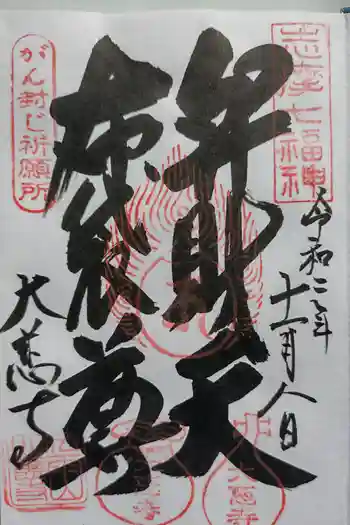 志度七福神
令和二年
十一月八日
弁財天
布袋尊
がん封じ祈願所
大慈寺